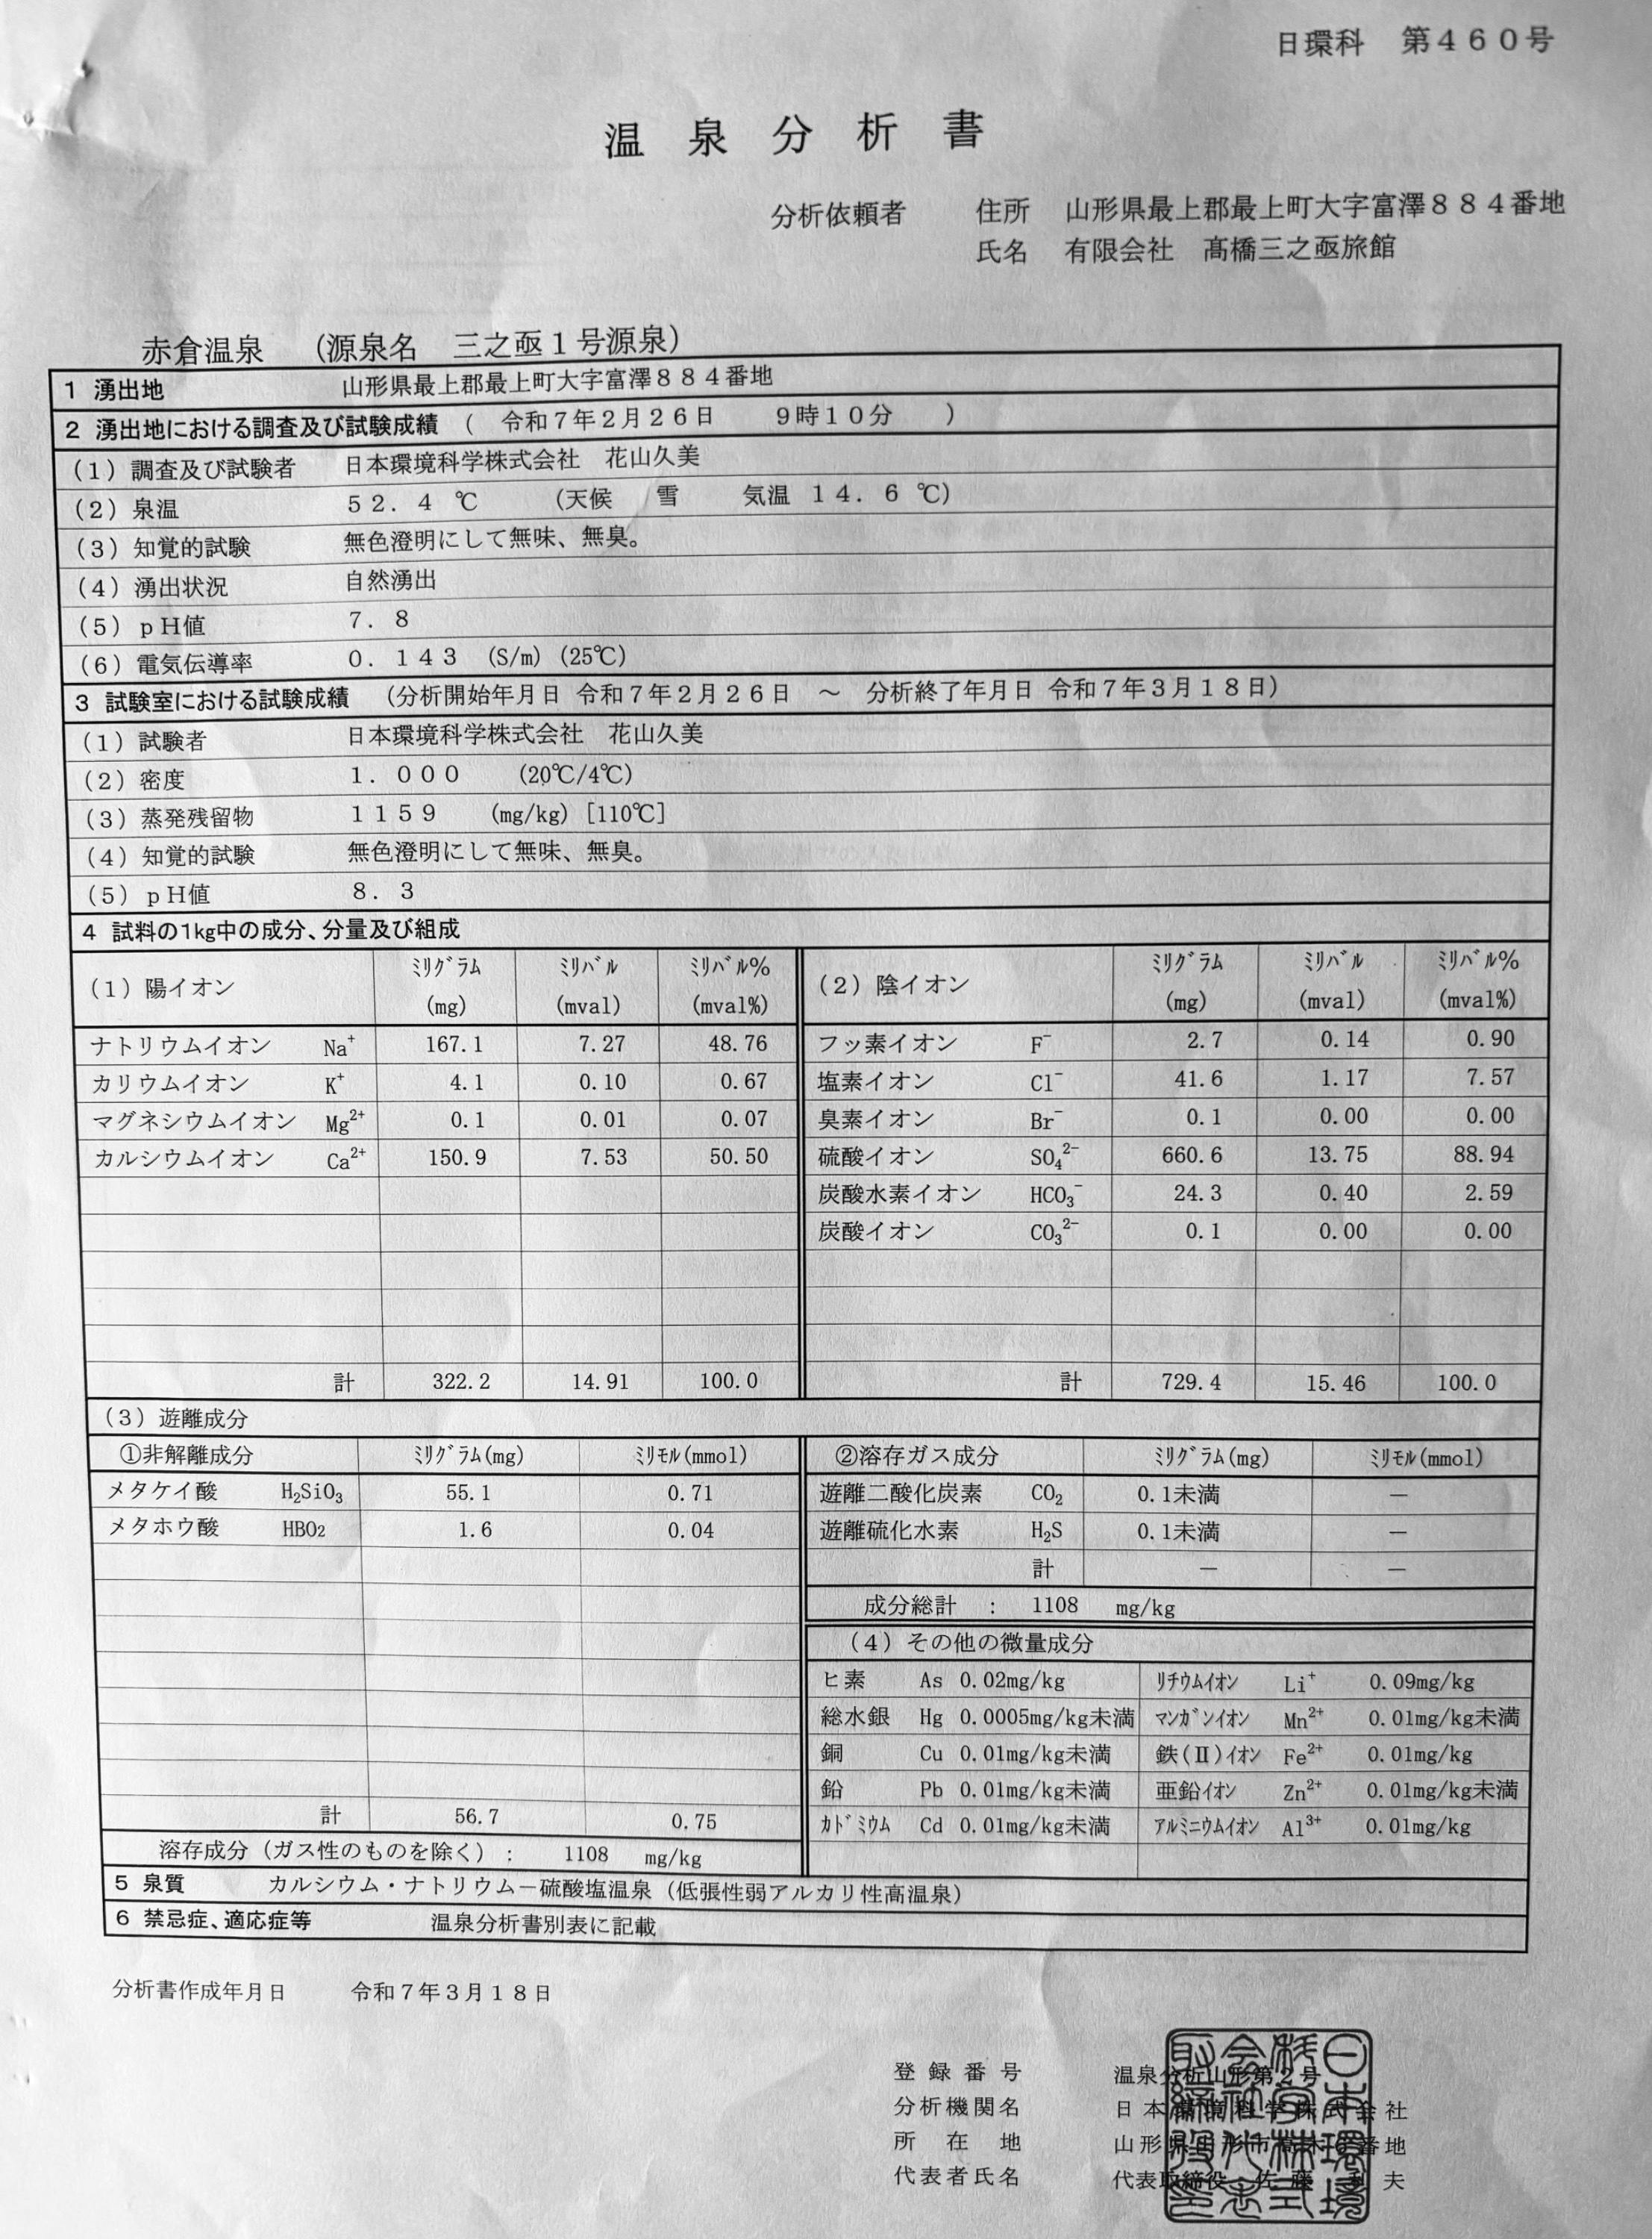 日環科　第４６０号
温泉分析書
分析依頼者　住所　山形県最上郡最上町大字富澤８８４番地
氏名　有限会社　髙橋三之亟旅館
赤倉温泉　（源泉名　三之亟１号源泉）
1 湧出地　山形県最上郡最上町大字富澤８８４番地
2 湧出地における調査及び試験成績　(　令和７年２月２６日　９時１０分　)
(1) 調査及び試験者　日本環境科学株式会社　花山久美
(2) 泉温　５２．４ ℃　(天候　雪　気温 １４．６ ℃)
(3) 知覚的試験　無色澄明にして無味、無臭。
(4) 湧出状況　自然湧出
(5) ｐＨ値　７．８
(6) 電気伝導率　０．１４３　(S/m) (25℃)
3 試験室における試験成績　(分析開始年月日 令和７年２月２６日　～　分析終了年月日 令和７年３月１８日)
(1) 試験者　日本環境科学株式会社　花山久美
(2) 密度　１．０００　(20℃/4℃)
(3) 蒸発残留物　１１５９　(mg/kg) [110℃]
(4) 知覚的試験　無色澄明にして無味、無臭。
(5) ｐＨ値　８．３
4 試料の1kg中の成分、分量及び組成
(1) 陽イオン　ﾐﾘｸﾞﾗﾑ (mg)　ﾐﾘﾊﾞﾙ (mval)　ﾐﾘﾊﾞﾙ% (mval%)　(2) 陰イオン　ﾐﾘｸﾞﾗﾑ (mg)　ﾐﾘﾊﾞﾙ (mval)　ﾐﾘﾊﾞﾙ% (mval%)
ナトリウムイオン　Na⁺　167.1　7.27　48.76　フッ素イオン　F⁻　2.7　0.14　0.90
カリウムイオン　K⁺　4.1　0.10　0.67　塩素イオン　Cl⁻　41.6　1.17　7.57
マグネシウムイオン　Mg²⁺　0.1　0.01　0.07　臭素イオン　Br⁻　0.1　0.00　0.00
カルシウムイオン　Ca²⁺　150.9　7.53　50.50　硫酸イオン　SO₄²⁻　660.6　13.75　88.94
炭酸水素イオン　HCO₃⁻　24.3　0.40　2.59
炭酸イオン　CO₃²⁻　0.1　0.00　0.00
計　322.2　14.91　100.0　計　729.4　15.46　100.0
(3) 遊離成分
①非解離成分　ﾐﾘｸﾞﾗﾑ(mg)　ﾐﾘﾓﾙ(mmol)　②溶存ガス成分　ﾐﾘｸﾞﾗﾑ(mg)　ﾐﾘﾓﾙ(mmol)
メタケイ酸　H₂SiO₃　55.1　0.71　遊離二酸化炭素　CO₂　0.1未満　—
メタホウ酸　HBO₂　1.6　0.04　遊離硫化水素　H₂S　0.1未満　—
計　—　—
成分総計　:　1108　mg/kg
(4) その他の微量成分
ヒ素　As　0.02mg/kg　ﾘﾁｳﾑｲｵﾝ　Li⁺　0.09mg/kg
総水銀　Hg　0.0005mg/kg未満　ﾏﾝｶﾞﾝｲｵﾝ　Mn²⁺　0.01mg/kg未満
銅　Cu　0.01mg/kg未満　鉄(Ⅱ)ｲｵﾝ　Fe²⁺　0.01mg/kg
鉛　Pb　0.01mg/kg未満　亜鉛ｲｵﾝ　Zn²⁺　0.01mg/kg未満
計　56.7　0.75　ｶﾄﾞﾐｳﾑ　Cd　0.01mg/kg未満　ｱﾙﾐﾆｳﾑｲｵﾝ　Al³⁺　0.01mg/kg
溶存成分（ガス性のものを除く）:　1108　mg/kg
5 泉質　カルシウム・ナトリウム－硫酸塩温泉（低張性弱アルカリ性高温泉）
6 禁忌症、適応症等　温泉分析書別表に記載
分析書作成年月日　令和７年３月１８日
登録番号　温泉分析山形第２号
分析機関名　日本環境科学株式会社
所在地　山形県山形市高木６番地
代表者氏名　代表取締役　佐藤　夫